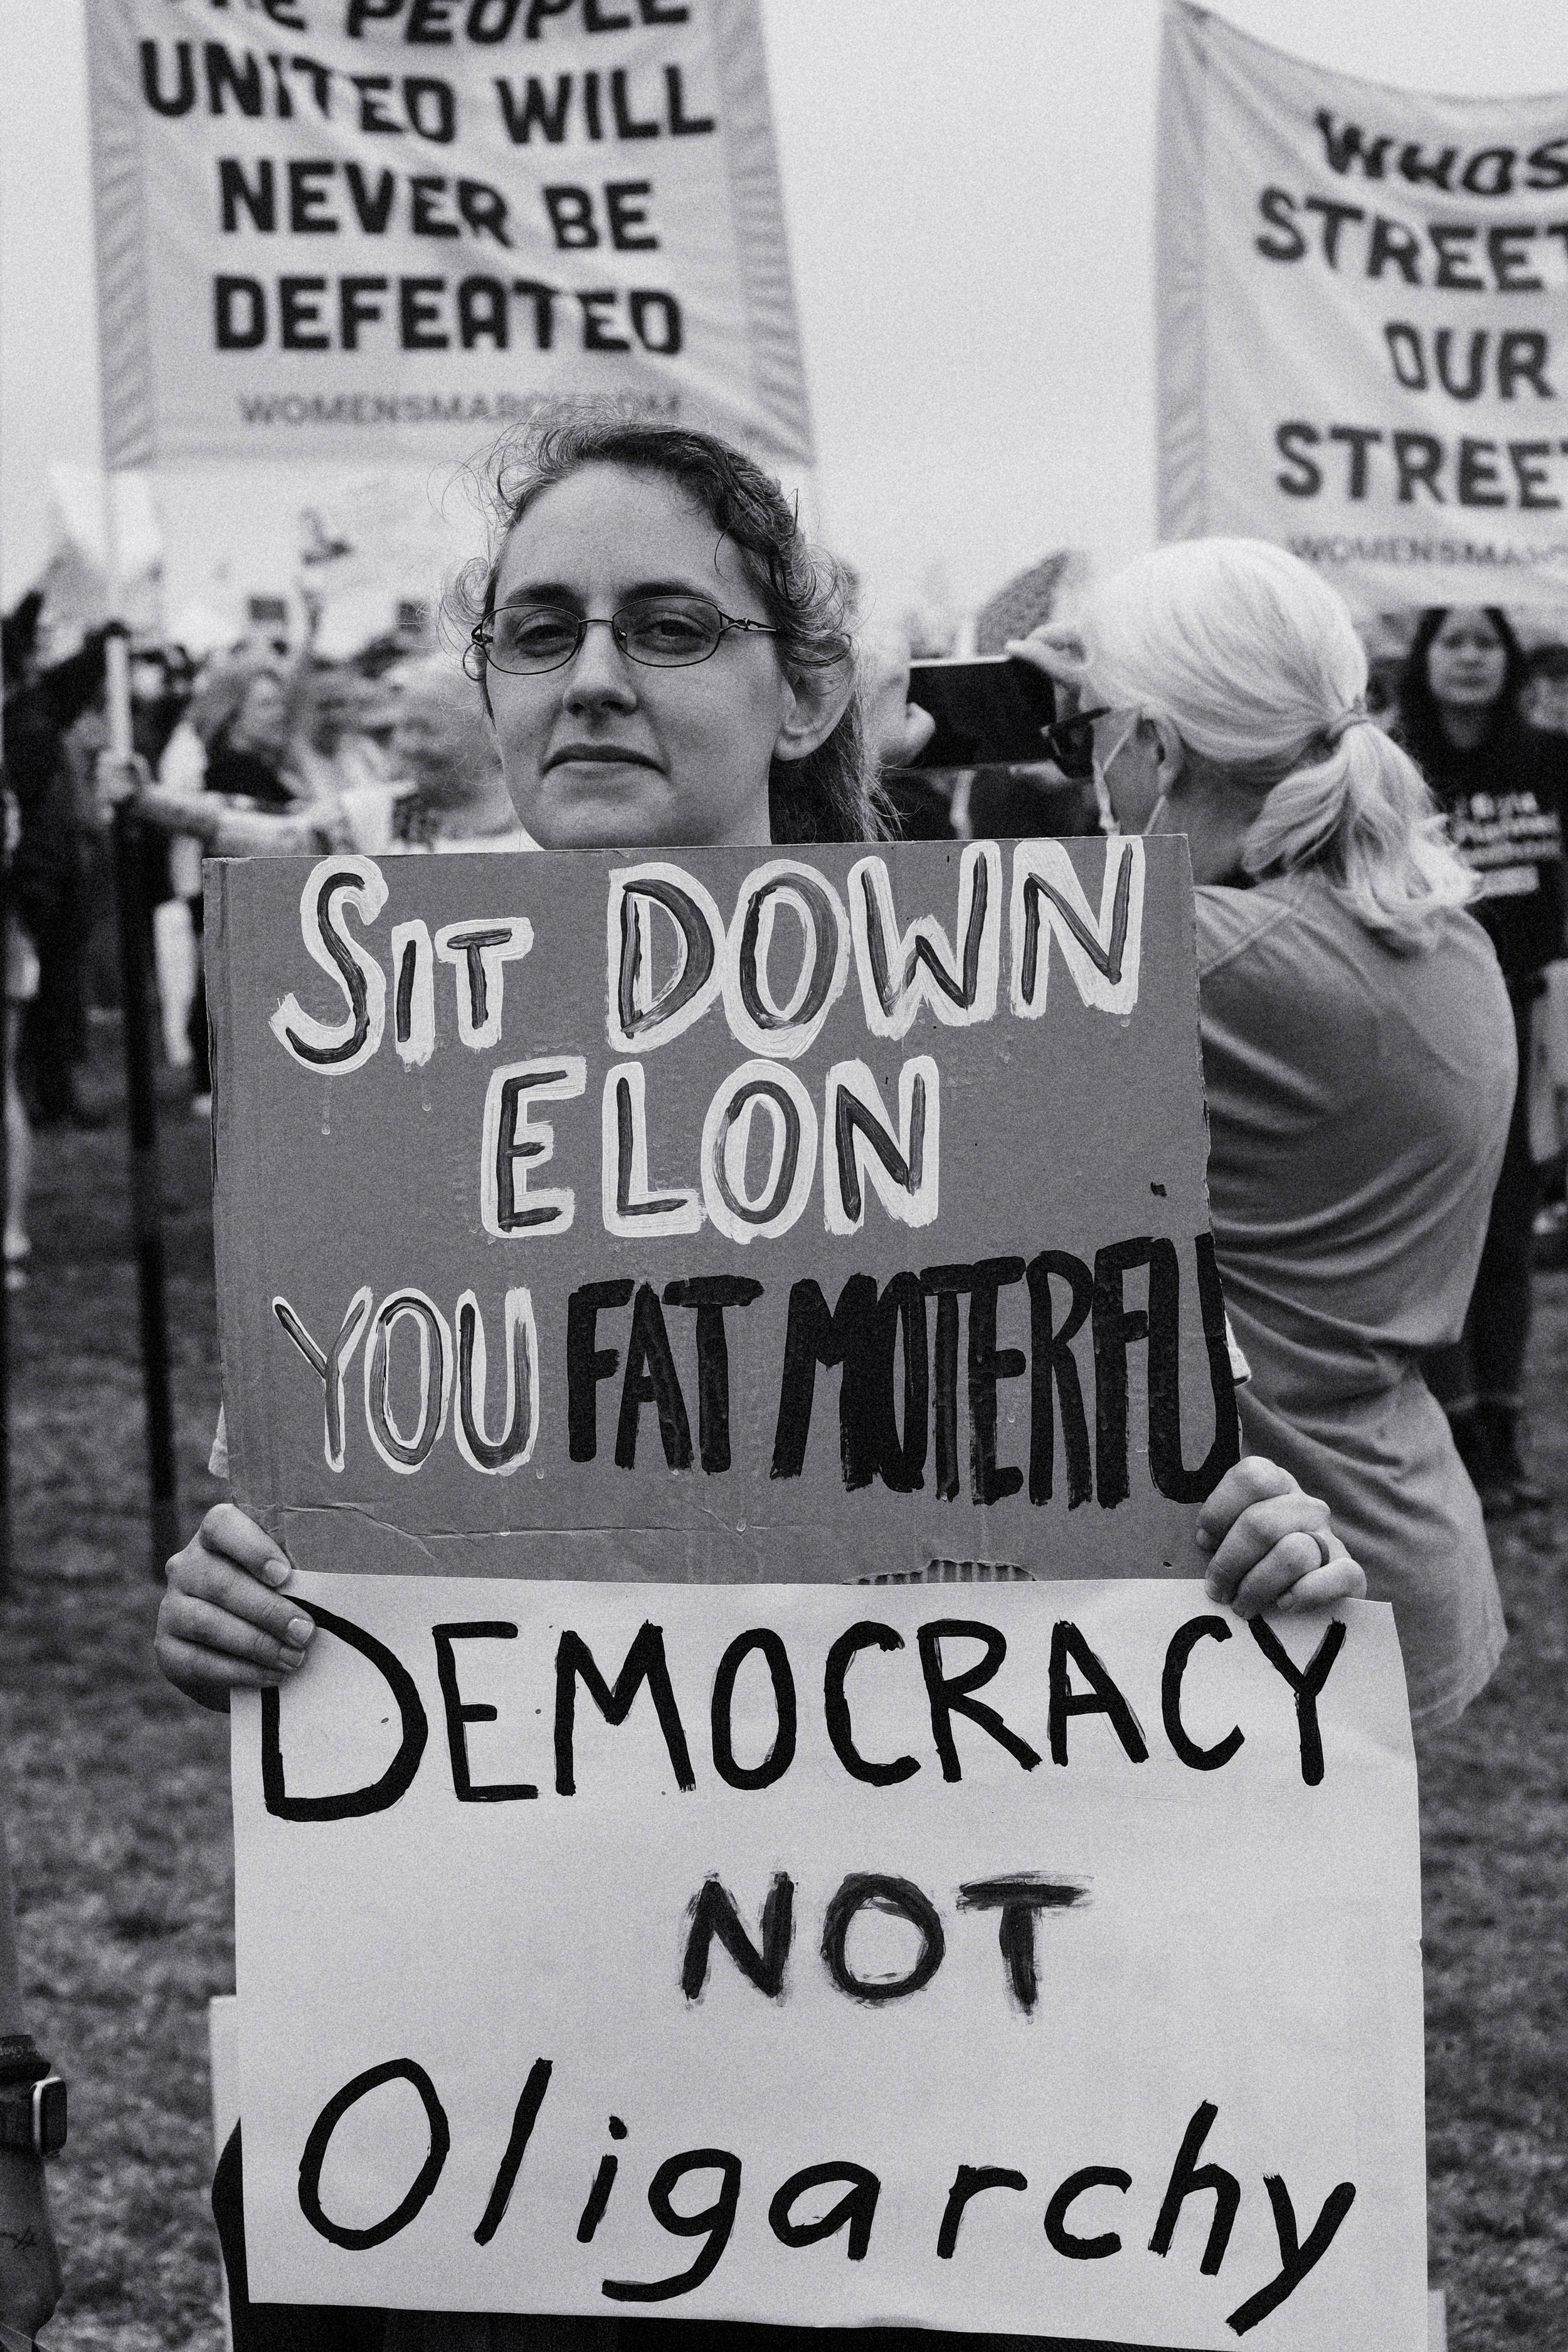 PEOPLE
UNITED WILL
NEVER BE
DEFEATED
WOMENSMARCH.COM
WHOS
STREET
OUR
STREET
WOMENSMARC
SIT DOWN
ELON
YOU FAT MOTERFU
DEMOCRACY
NOT
Oligarchy